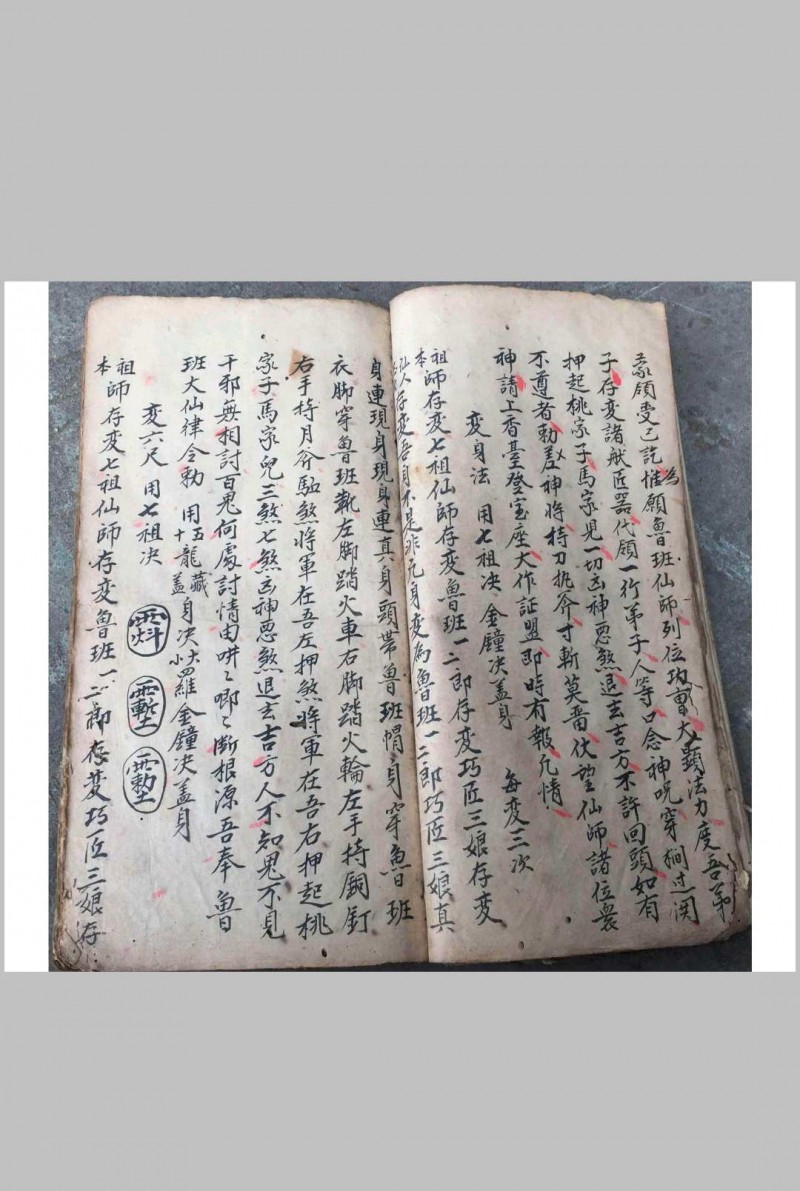 蒙領受已訖惟願魯班仙師列位大顯法力度吾弟
為
子存变諸般匠器代領一行弟子人等口念神咒穿過関
押起桃家子馬家兒一切凶神惡煞退去吉方不許回頭如有
不尊者勅差神将持刀執斧寸斬莫畱伏望仙師諸位衆
神請上香臺登宝座大作証盟即時有報凡情
变身法 用七祖决 金鐘决盖身 每变三次
祖本師存变七祖仙師存变魯班一二郎存变巧匠三娘存变
仙人存变吾身不是非凡身变為魯班一二郎巧匠三娘真
身連現身現身連真身頭帯魯班帽身穿魯班
衣脚穿魯班靴左脚踏火車右脚踏火輪左手持銅釘
右手持月斧馳煞将軍在吾左押煞将軍在吾右押起桃
家子馬家兒三煞七煞凶神惡煞退去吉方人不知鬼不見
干邪無相討百鬼何處討情由唧斷根源吾奉魯
班大仙律令勅 用五龍藏身决大小羅金鐘决盖身
十盖
变六尺 用七祖决
祖本師存变七祖仙師存变魯班一二郎存变巧匠三娘存